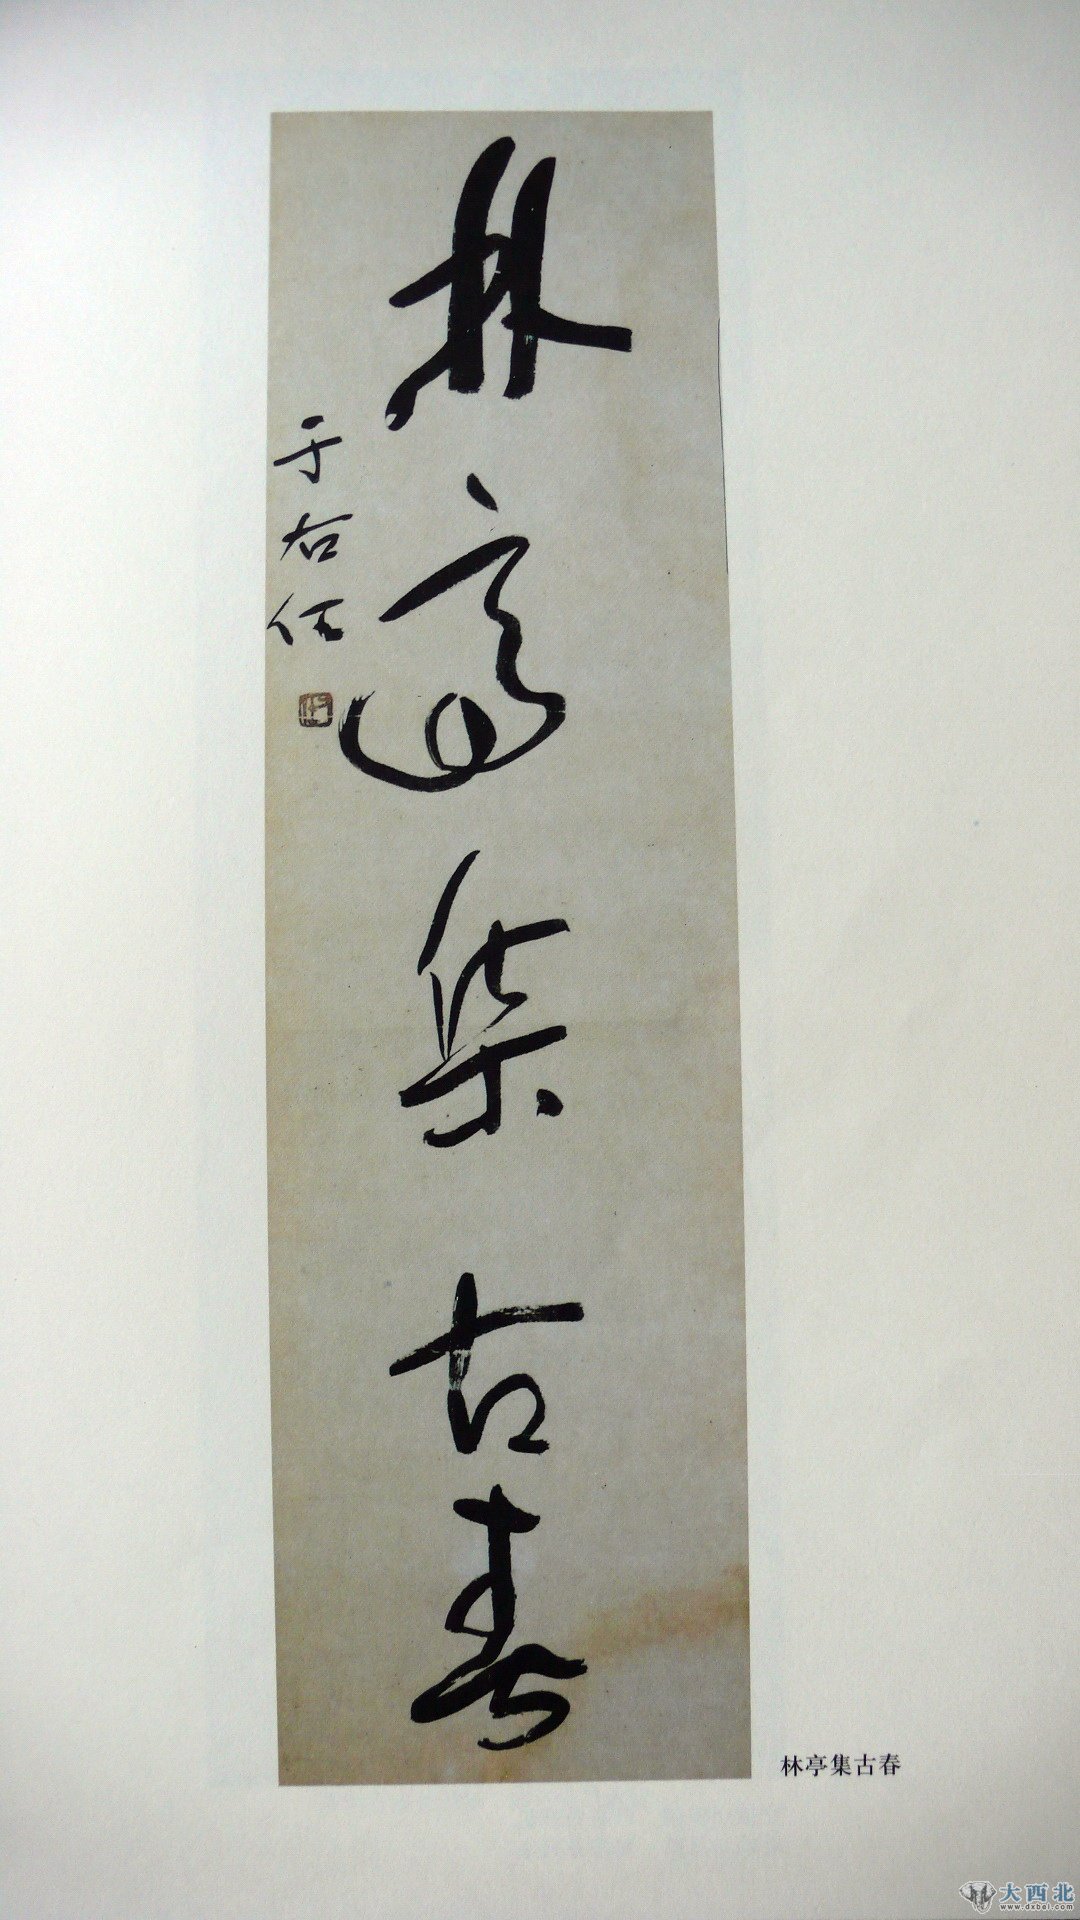 林亭集古春
于右任
林亭集古春
大西北
www.dxbei.com